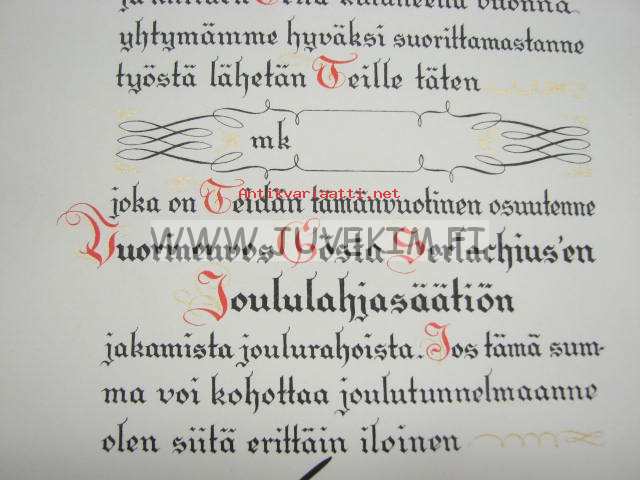 ja kiittäen Teitä kuluneena vuonna
yhtymämme hyväksi suorittamastanne
työstä lähetän Teille täten
mk
Antikvariaatti.net
joka on Teidän tämänvuotinen osuutenne
WWW.JUVEKIM.FI
Vuorineuvos Gösta Serlachius'en
Joululahjasäätiön
jakamista joulurahoista. Jos tämä sum-
ma voi kohottaa joulutunnelmaanne
olen siitä erittäin iloinen